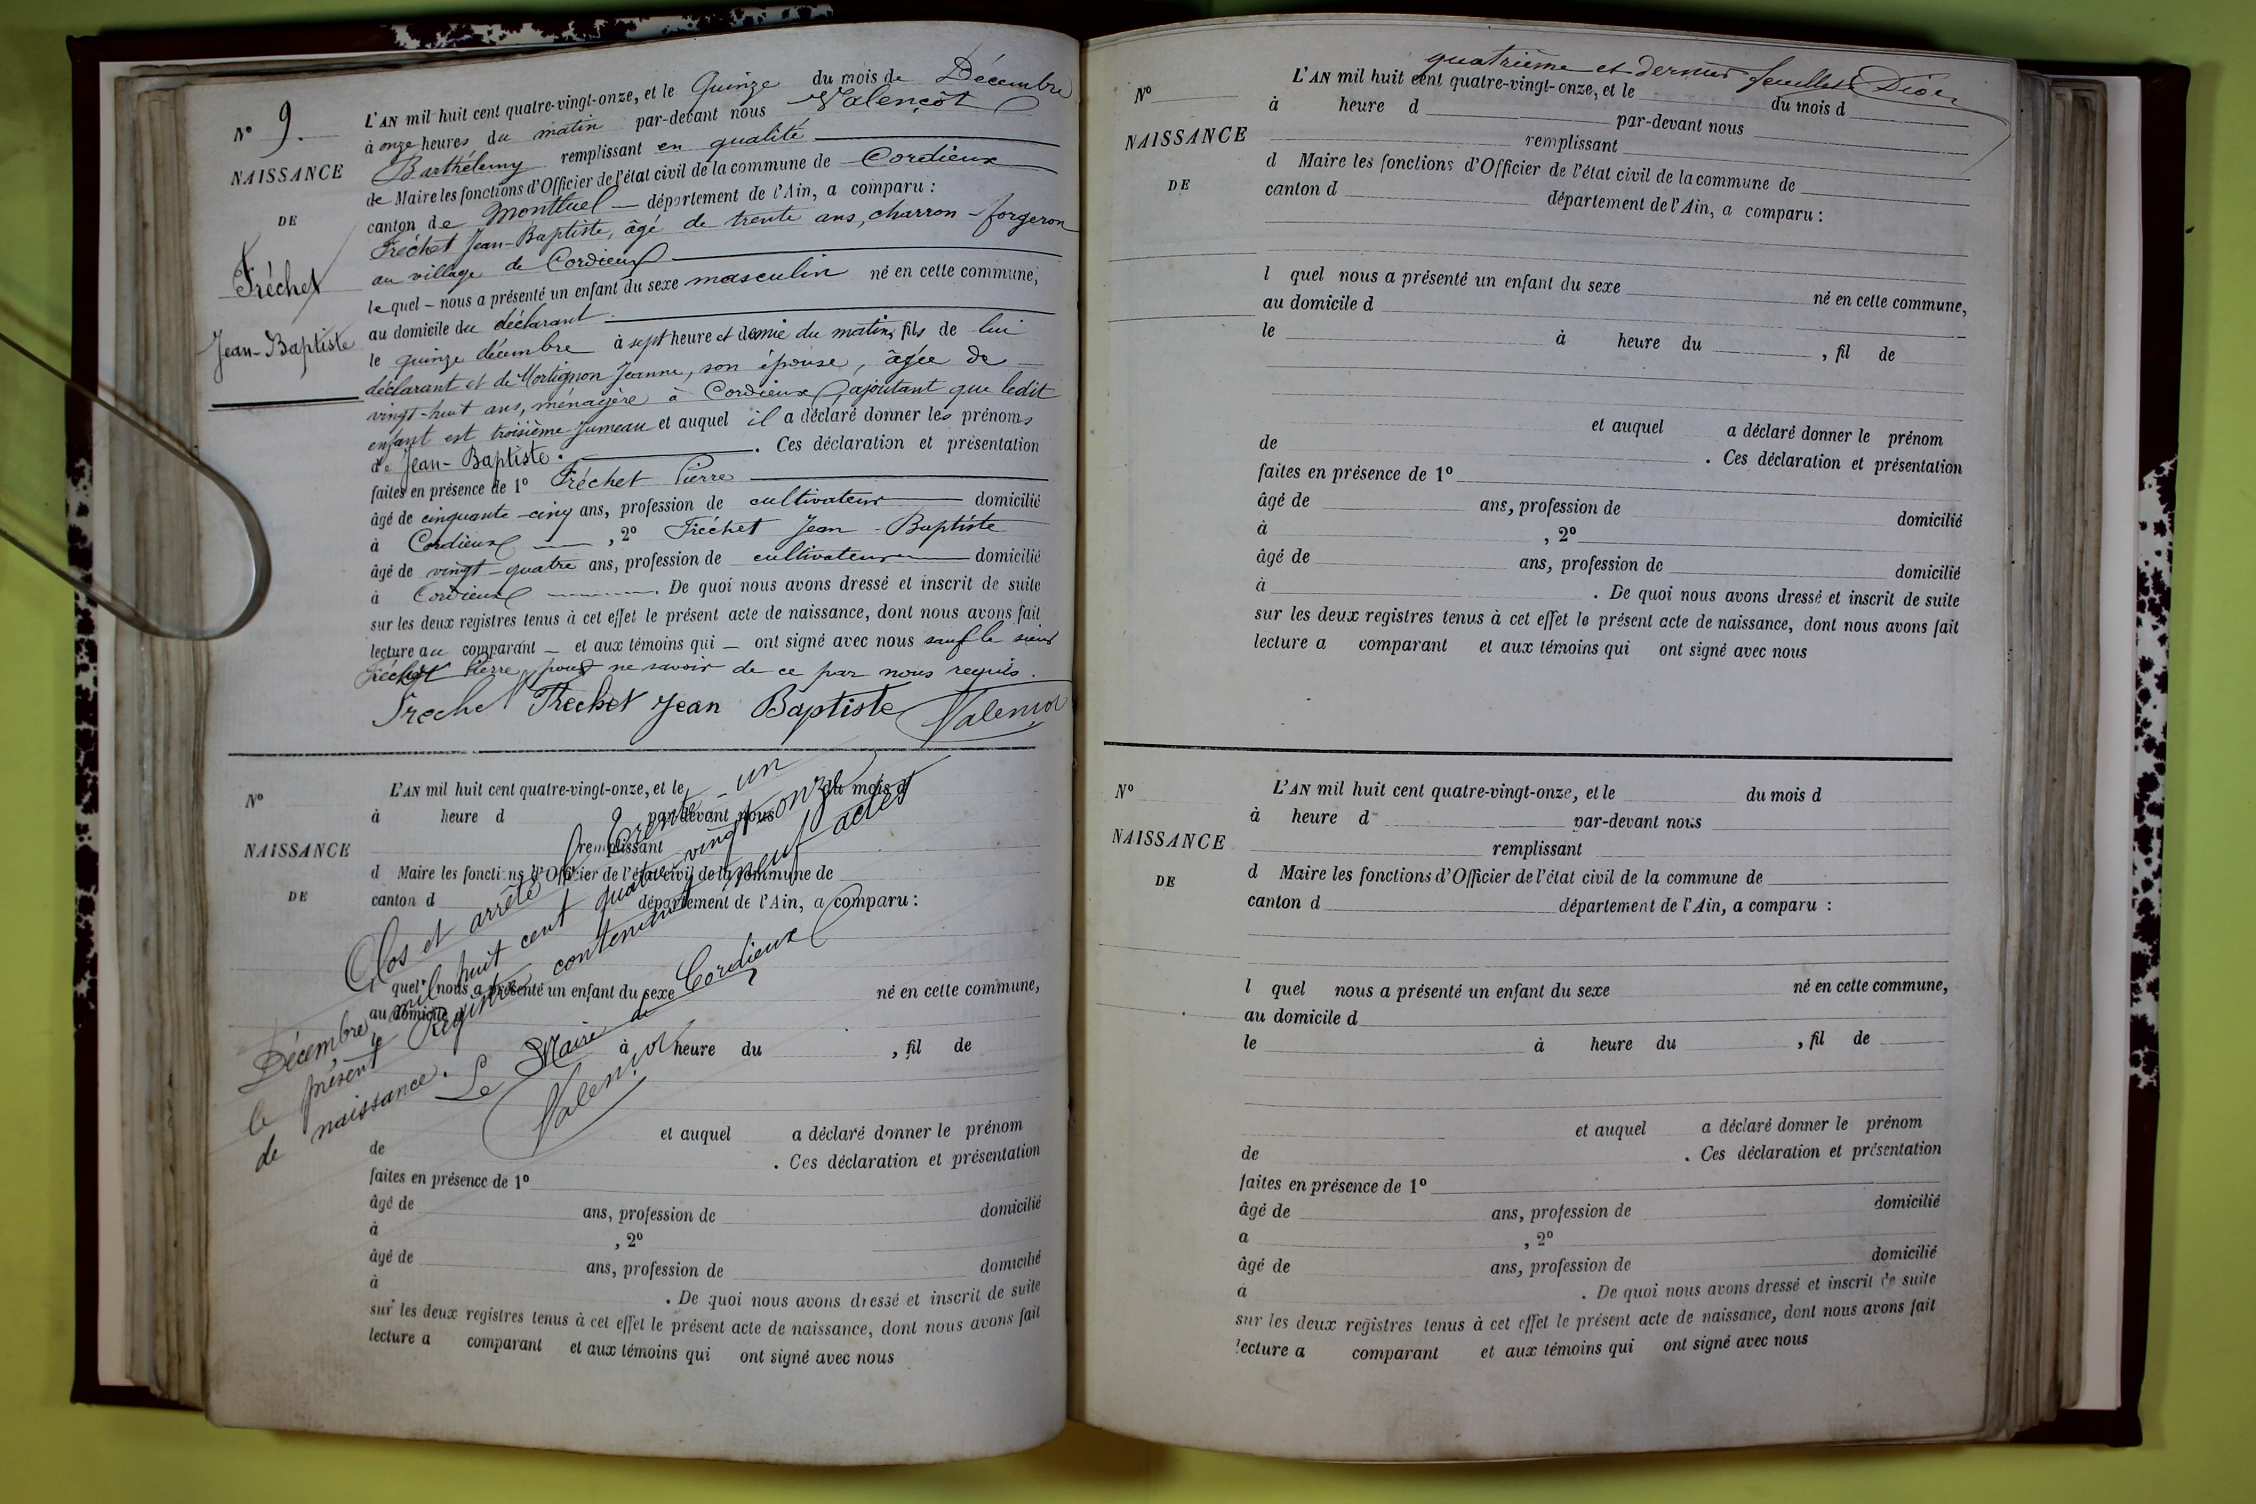 N° 9.
NAISSANCE
DE
Fréchet
Jean-Baptiste
L'AN mil huit cent quatre-vingt-onze, et le Quinze du mois de Décembre
à onze heures du matin par-devant nous Valençot
Barthélemy remplissant en qualité
de Maire les fonctions d'Officier de l'état civil de la commune de Cordieux
canton de Montluel département de l'Ain, a comparu :
Fréchet Jean-Baptiste, âgé de trente ans, charron-forgeron
au village de Cordieux
lequel nous a présenté un enfant du sexe masculin né en cette commune,
au domicile du déclarant
le quinze décembre à sept heure et demie du matin, fils de lui
déclarant et de Mortignon Jeanne, son épouse, âgée de
vingt-huit ans, ménagère à Cordieux, ajoutant que ledit
enfant est troisième Jumeau et auquel il a déclaré donner les prénoms
de Jean-Baptiste. . Ces déclaration et présentation
faites en présence de 1° Fréchet Pierre
âgé de cinquante-cinq ans, profession de cultivateur domicilié
à Cordieux , 2° Fréchet Jean-Baptiste
âgé de vingt-quatre ans, profession de cultivateur domicilié
à Cordieux . De quoi nous avons dressé et inscrit de suite
sur les deux registres tenus à cet effet le présent acte de naissance, dont nous avons fait
lecture au comparant et aux témoins qui ont signé avec nous sauf le sieur
Fréchet Pierre, pour ne savoir de ce par nous requis.
Frechet Frechet Jean Baptiste Valençot
N°
NAISSANCE
DE
L'AN mil huit cent quatre-vingt-onze, et le du mois d
à heure d par-devant nous
remplissant
d Maire les fonctions d'Officier de l'état civil de la commune de
canton d département de l'Ain, a comparu :
l quel nous a présenté un enfant du sexe né en cette commune,
au domicile d
à heure du , fil de
et auquel a déclaré donner le prénom
de . Ces déclaration et présentation
faites en présence de 1°
âgé de ans, profession de domicilié
à , 2°
âgé de ans, profession de domicilié
à . De quoi nous avons dressé et inscrit de suite
sur les deux registres tenus à cet effet le présent acte de naissance, dont nous avons fait
lecture a comparant et aux témoins qui ont signé avec nous
Clos et arrêté le trente-un
Décembre mil huit cent quatre vingt-onze
le présent Registre contenant neuf actes
de naissance.
Le Maire de Cordieux
Valençot
quatrième et dernier feuillet
N°
NAISSANCE
DE
L'AN mil huit cent quatre-vingt-onze, et le du mois d
à heure d par-devant nous
remplissant
d Maire les fonctions d'Officier de l'état civil de la commune de
canton d département de l'Ain, a comparu :
l quel nous a présenté un enfant du sexe né en cette commune,
au domicile d
le à heure du , fil de
et auquel a déclaré donner le prénom
de . Ces déclaration et présentation
faites en présence de 1°
âgé de ans, profession de domicilié
à , 2°
âgé de ans, profession de domicilié
à . De quoi nous avons dressé et inscrit de suite
sur les deux registres tenus à cet effet le présent acte de naissance, dont nous avons fait
lecture a comparant et aux témoins qui ont signé avec nous
N°
NAISSANCE
DE
L'AN mil huit cent quatre-vingt-onze, et le du mois d
à heure d par-devant nous
remplissant
d Maire les fonctions d'Officier de l'état civil de la commune de
canton d département de l'Ain, a comparu :
l quel nous a présenté un enfant du sexe né en cette commune,
au domicile d
le à heure du , fil de
et auquel a déclaré donner le prénom
de . Ces déclaration et présentation
faites en présence de 1°
âgé de ans, profession de domicilié
a , 2°
âgé de ans, profession de domicilié
à . De quoi nous avons dressé et inscrit de suite
sur les deux registres tenus à cet effet le présent acte de naissance, dont nous avons fait
lecture a comparant et aux témoins qui ont signé avec nous